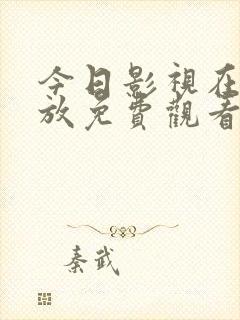 今日影視在
放免費觀看
秦武